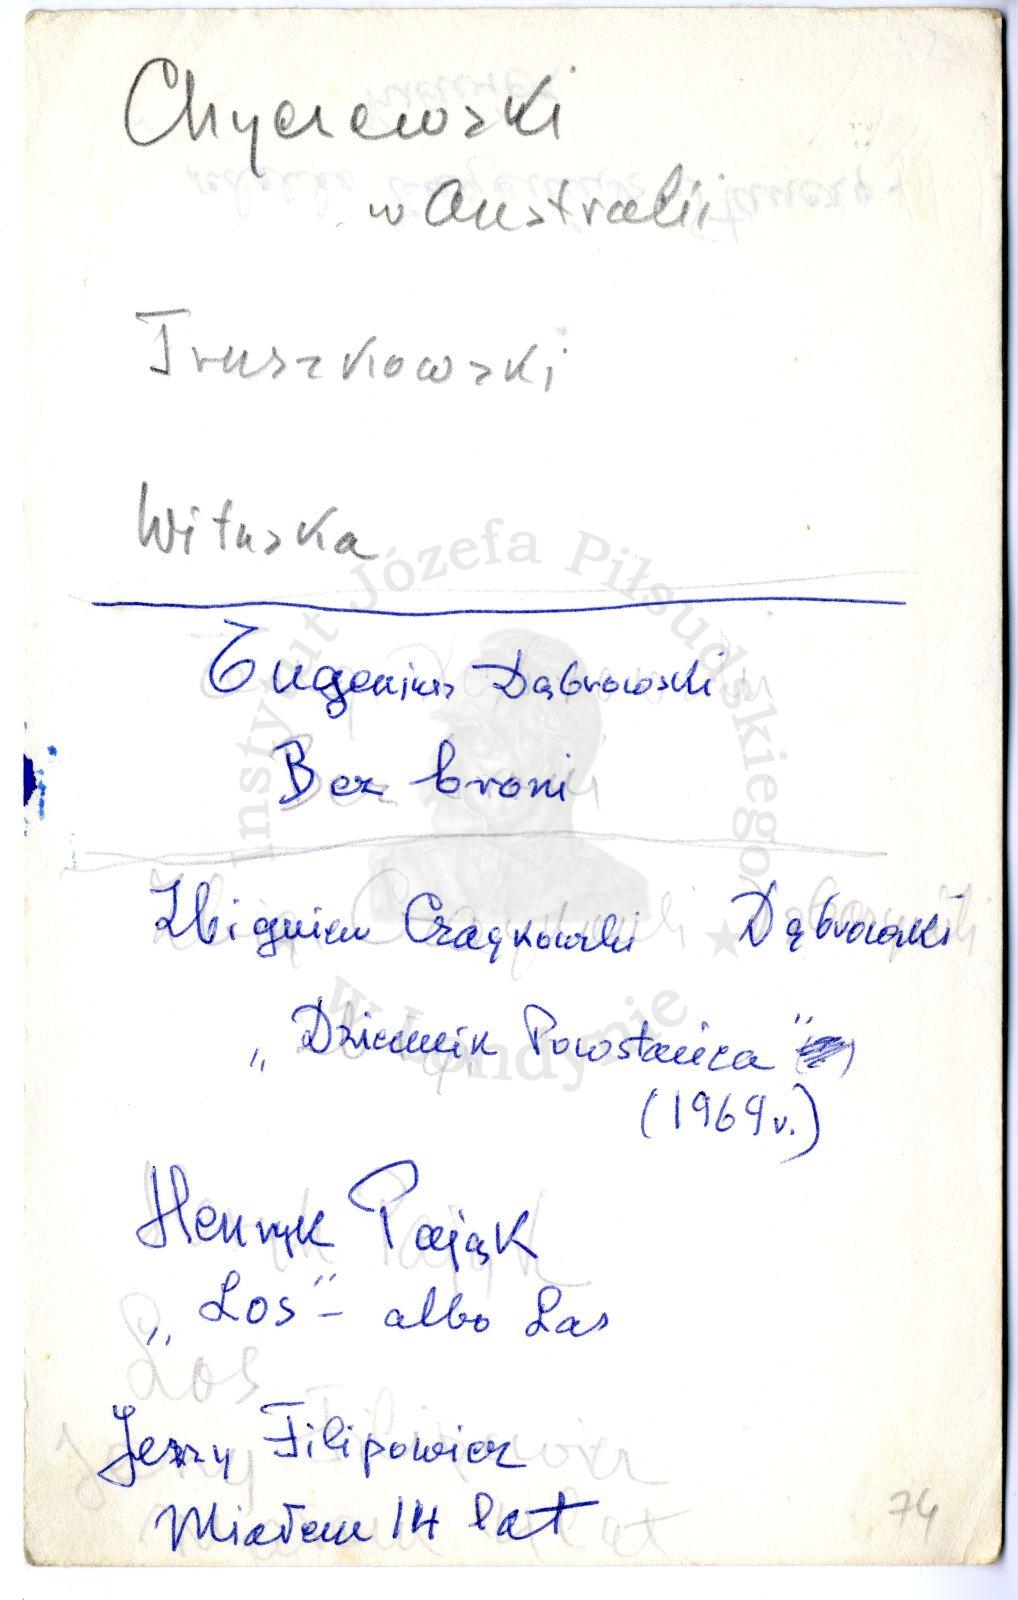 Chyczewski
w Australii
Truszkowski
Wituska
Eugeniusz Dąbrowski
Bez broni
Zbigniew Czajkowski Dąbrowski
„Dziennik Powstańca"
(1969 r.)
Henryk Pająk
„Los" – albo Las
Jerzy Filipowicz
Miałem 14 lat
74
Instytut Józefa Piłsudskiego
w Londynie